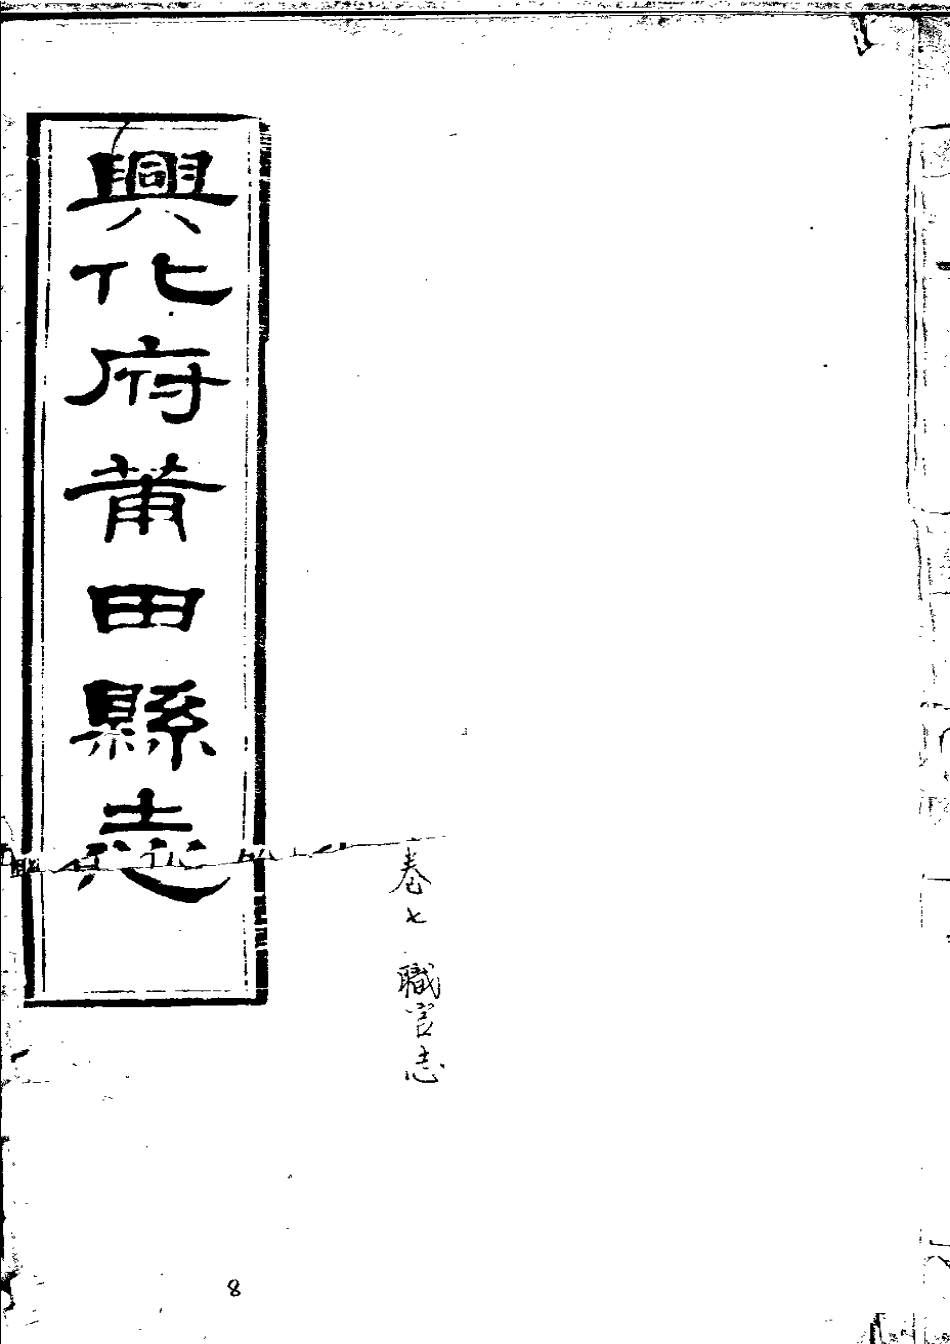 興化府莆田縣志
卷七 職官志
8